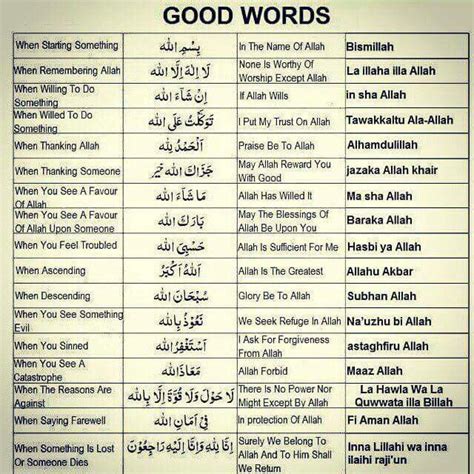 GOOD WORDS
When Starting Something بِسْمِ اللّٰه In The Name Of Allah Bismillah
When Remembering Allah لَا اِلٰهَ اِلَّا اللّٰه None Is Worthy Of Worship Except Allah La illaha illa Allah
When Willing To Do Something اِنْ شَآءَ اللّٰه If Allah Wills in sha Allah
When Willed To Do Something تَوَكَّلْتُ عَلَى اللّٰه I Put My Trust On Allah Tawakkaltu Ala-Allah
When Thanking Allah اَلْحَمْدُ لِلّٰه Praise Be To Allah Alhamdulillah
When Thanking Someone جَزَاكَ اللّٰه خَيْر May Allah Reward You With Good jazaka Allah khair
When You See A Favour Of Allah مَا شَآءَ اللّٰه Allah Has Willed It Ma sha Allah
When You See A Favour Of Allah Upon Someone بَارَكَ اللّٰه May The Blessings Of Allah Be Upon You Baraka Allah
When You Feel Troubled حَسْبِيَ اللّٰه Allah Is Sufficient For Me Hasbi ya Allah
When Ascending اَللّٰهُ اَكْبَرُ Allah Is The Greatest Allahu Akbar
When Descending سُبْحَانَ اللّٰه Glory Be To Allah Subhan Allah
When You See Something Evil نَعُوْذُ بِاللّٰه We Seek Refuge In Allah Na'uzhu bi Allah
When You Sinned اَسْتَغْفِرُ اللّٰه I Ask For Forgiveness From Allah astaghfiru Allah
When You See A Catastrophe مَعَاذَ اللّٰه Allah Forbid Maaz Allah
When The Reasons Are Against لَا حَوْلَ وَلَا قُوَّةَ اِلَّا بِاللّٰه There Is No Power Nor Might Except By Allah La Hawla Wa La Quwwata illa Billah
When Saying Farewell فِيْ اَمَانِ اللّٰه In protection Of Allah Fi Aman Allah
When Something Is Lost Or Someone Dies اِنَّا لِلّٰهِ وَاِنَّا اِلَيْهِ رَاجِعُوْنَ Surely We Belong To Allah And To Him Shall We Return Inna Lillahi wa inna ilaihi raji'un